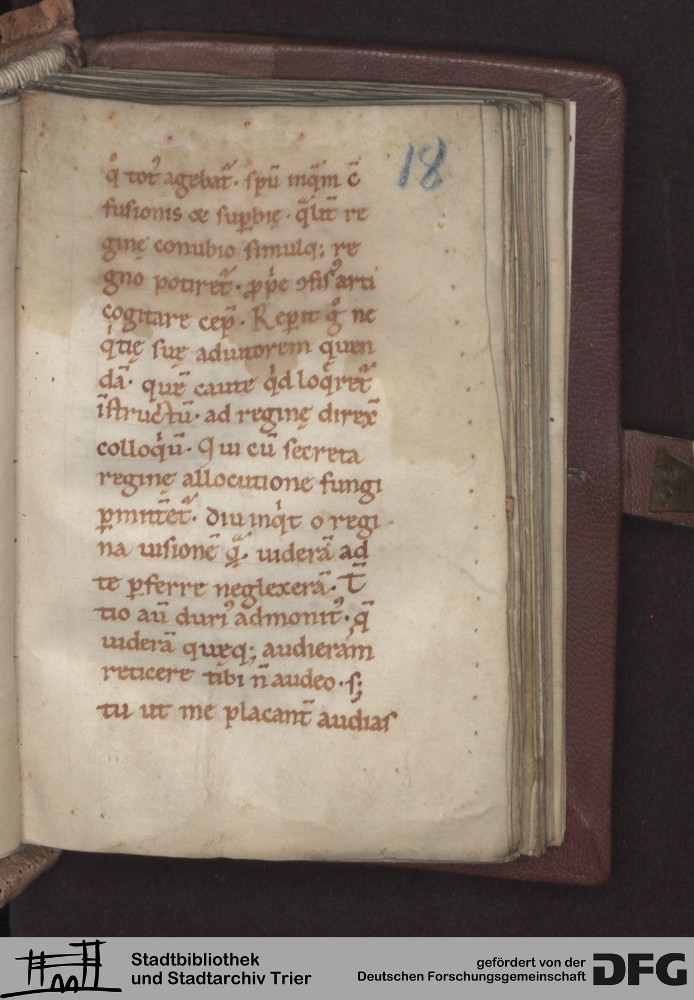 18
q̊ tot᷒ agebat᷑. spū inq̄m c̄
fusionis ⁊ suꝑbię. q̄lit᷑ re
ginę conubio simulq; re
gno potiret᷑. ꝓp̄e ꝯfis᷒ arti
cogitare cep̄. Reꝑit g̊ ne
q̇tię suę adiutorem quen
dā. quē caute q̇d loq̄ret᷑
īstructū. ad reginę direx̄
colloq̇ū. Qui cū secreta
reginę allocutione fungi
ꝑmittēt᷑. diu inq̇t o regi
na uisionē q̄. uiderā ad
te ꝑferre neglexerā. T̄
tio aū duri᷒ admonit᷒. q̄
uiderā quęq; audieram
reticere tibi n̄ audeo. s;
tu ut me placant̄ audias
Stadtbibliothek
und Stadtarchiv Trier
gefördert von der
Deutschen Forschungsgemeinschaft
DFG